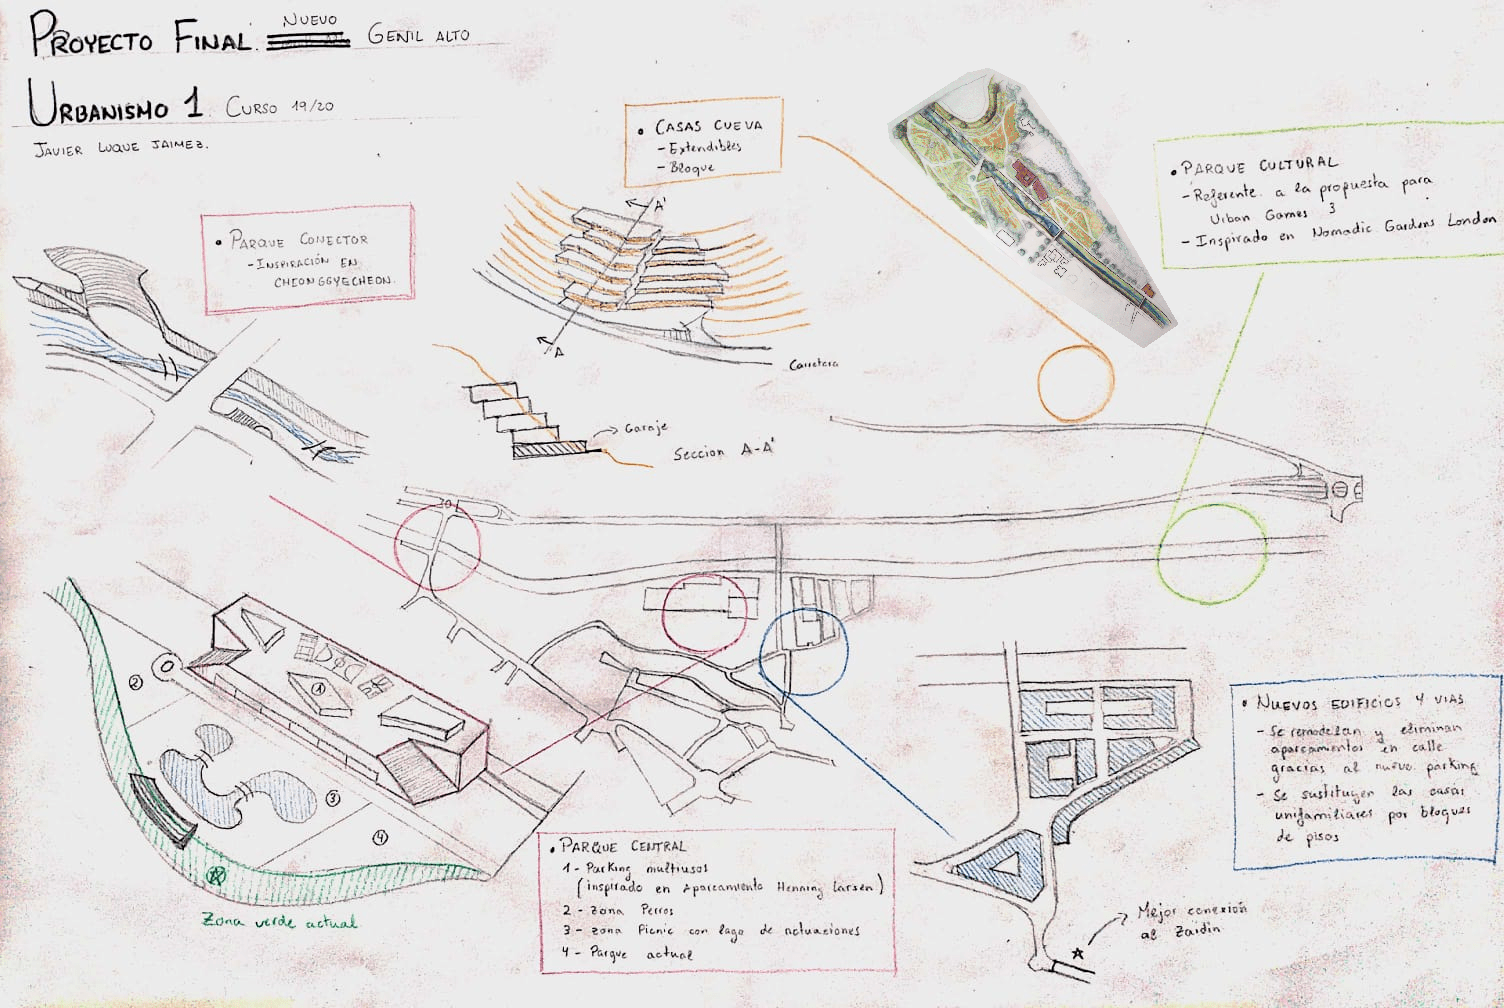 PROYECTO FINAL. NUEVO GENIL ALTO
URBANISMO 1 CURSO 19/20
JAVIER LUQUE JAIMEZ.
• PARQUE CONECTOR
- INSPIRACIÓN EN
CHEONGGYECHEON.
• CASAS CUEVA
- Extendibles
- Bloque
A'
A
Carretera
Garaje
Sección A-A'
• PARQUE CULTURAL
- Referente a la propuesta para
Urban Games 3
- Inspirado en Nomadic Gardens London
1
2
3
4
Zona verde actual
• PARQUE CENTRAL
1 - Parking multiusos
(inspirado en Aparcamiento Henning Larsen)
2 - Zona Perros
3 - Zona Picnic con lago de actuaciones
4 - Parque actual
• NUEVOS EDIFICIOS Y VIAS
- Se remodelan y eliminan
aparcamientos en calle
gracias al nuevo parking
- Se sustituyen las casas
unifamiliares por bloques
de pisos
Mejor conexión
al Zaidín